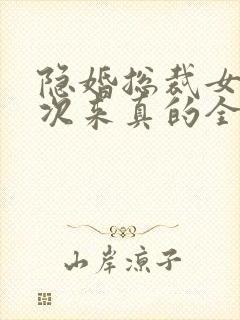 隐婚总裁女
次来真的全
山岸凉子